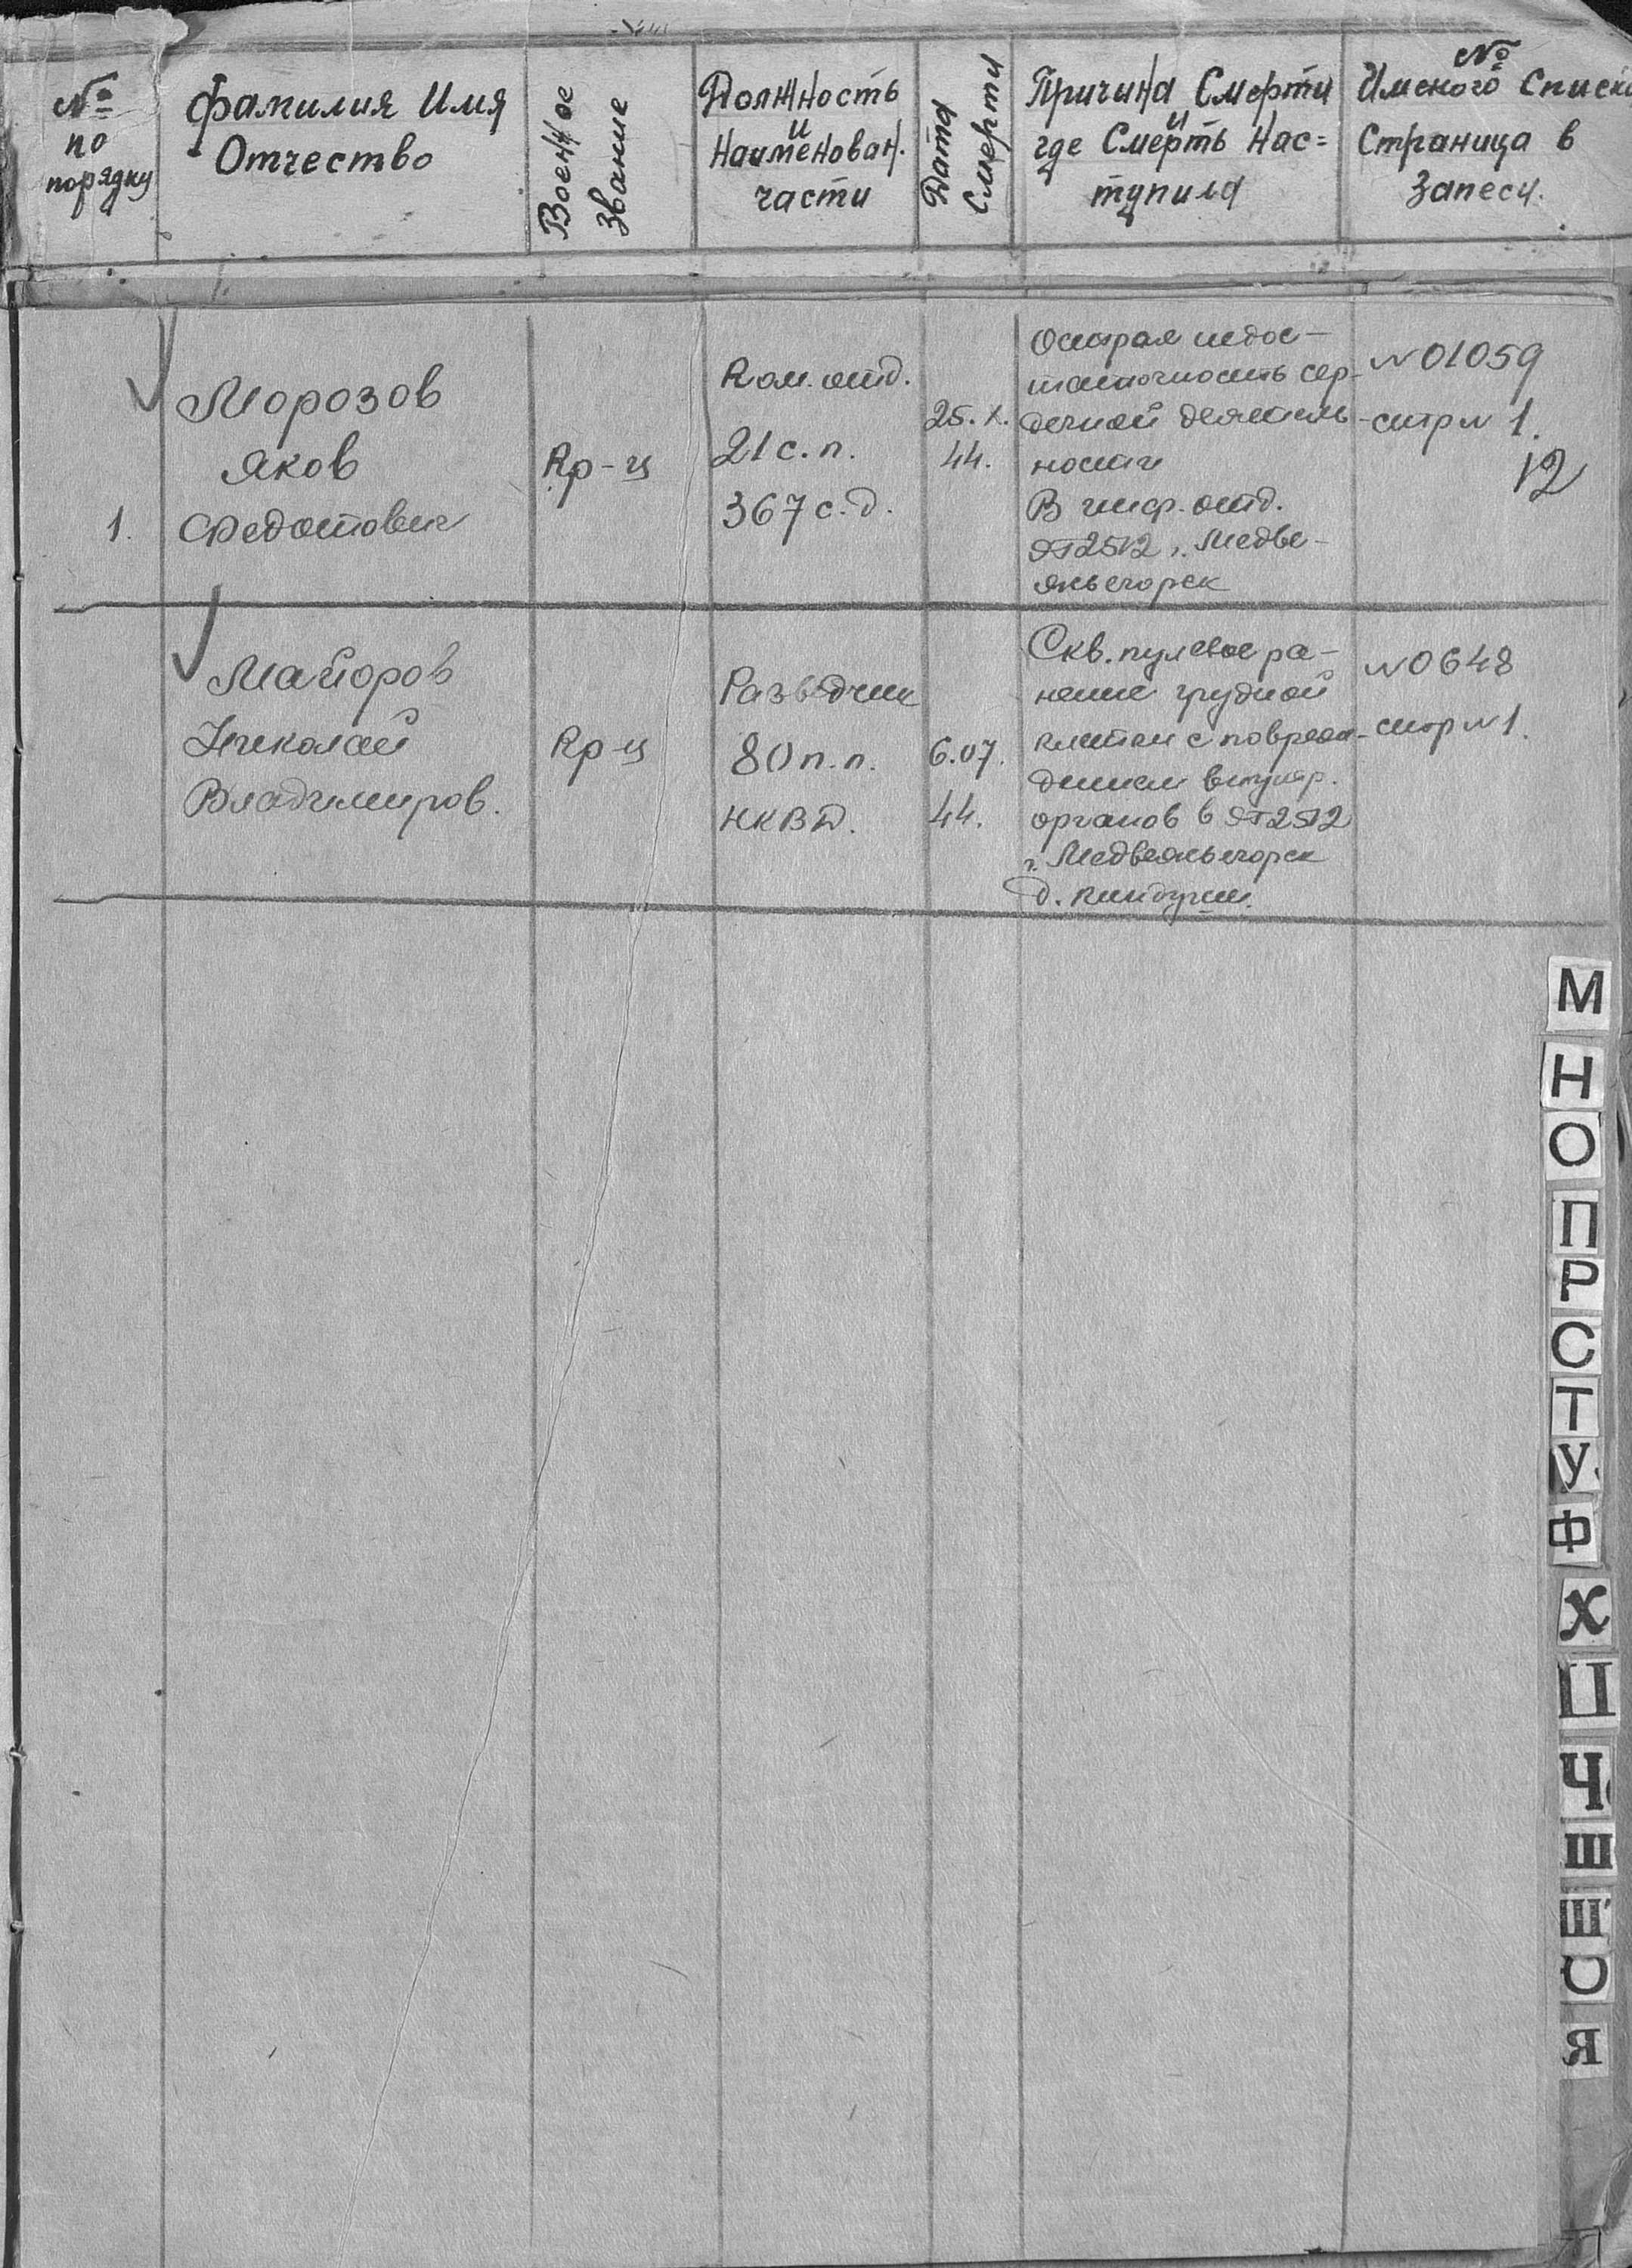 № по порядку
Фамилия Имя
Отчество
Военное
Звание
Должность
и
Наименован.
части
Дата
Смерти
Причина Смерти
и
где Смерть Нас=
тупила
№
Именого Списка
Страница в
Запеси.
1.
Морозов
Яков
Федотович
Кр-ц
Ком. отд.
21 с.п.
367 с.д.
25.X.
44.
Острая недос-
таточность сер-
дечной деятель-
ности
В инф. отд.
ЭГ2512 г. Медве-
жьегорск
№01059
стр №1.
12
Майоров
Николай
Владимиров.
Кр-ц
Разведчик
80 п.п.
НКВД.
6.07.
44.
Скв. пулевое ра-
нение грудной
клетки с повреж-
дением внутр.
органов в ЭГ2512
г. Медвежьегорск
д. Пиндуши.
№0648
стр №1.
М
Н
О
П
Р
С
Т
У
Ф
Х
Ц
Ч
Ш
Щ
Я